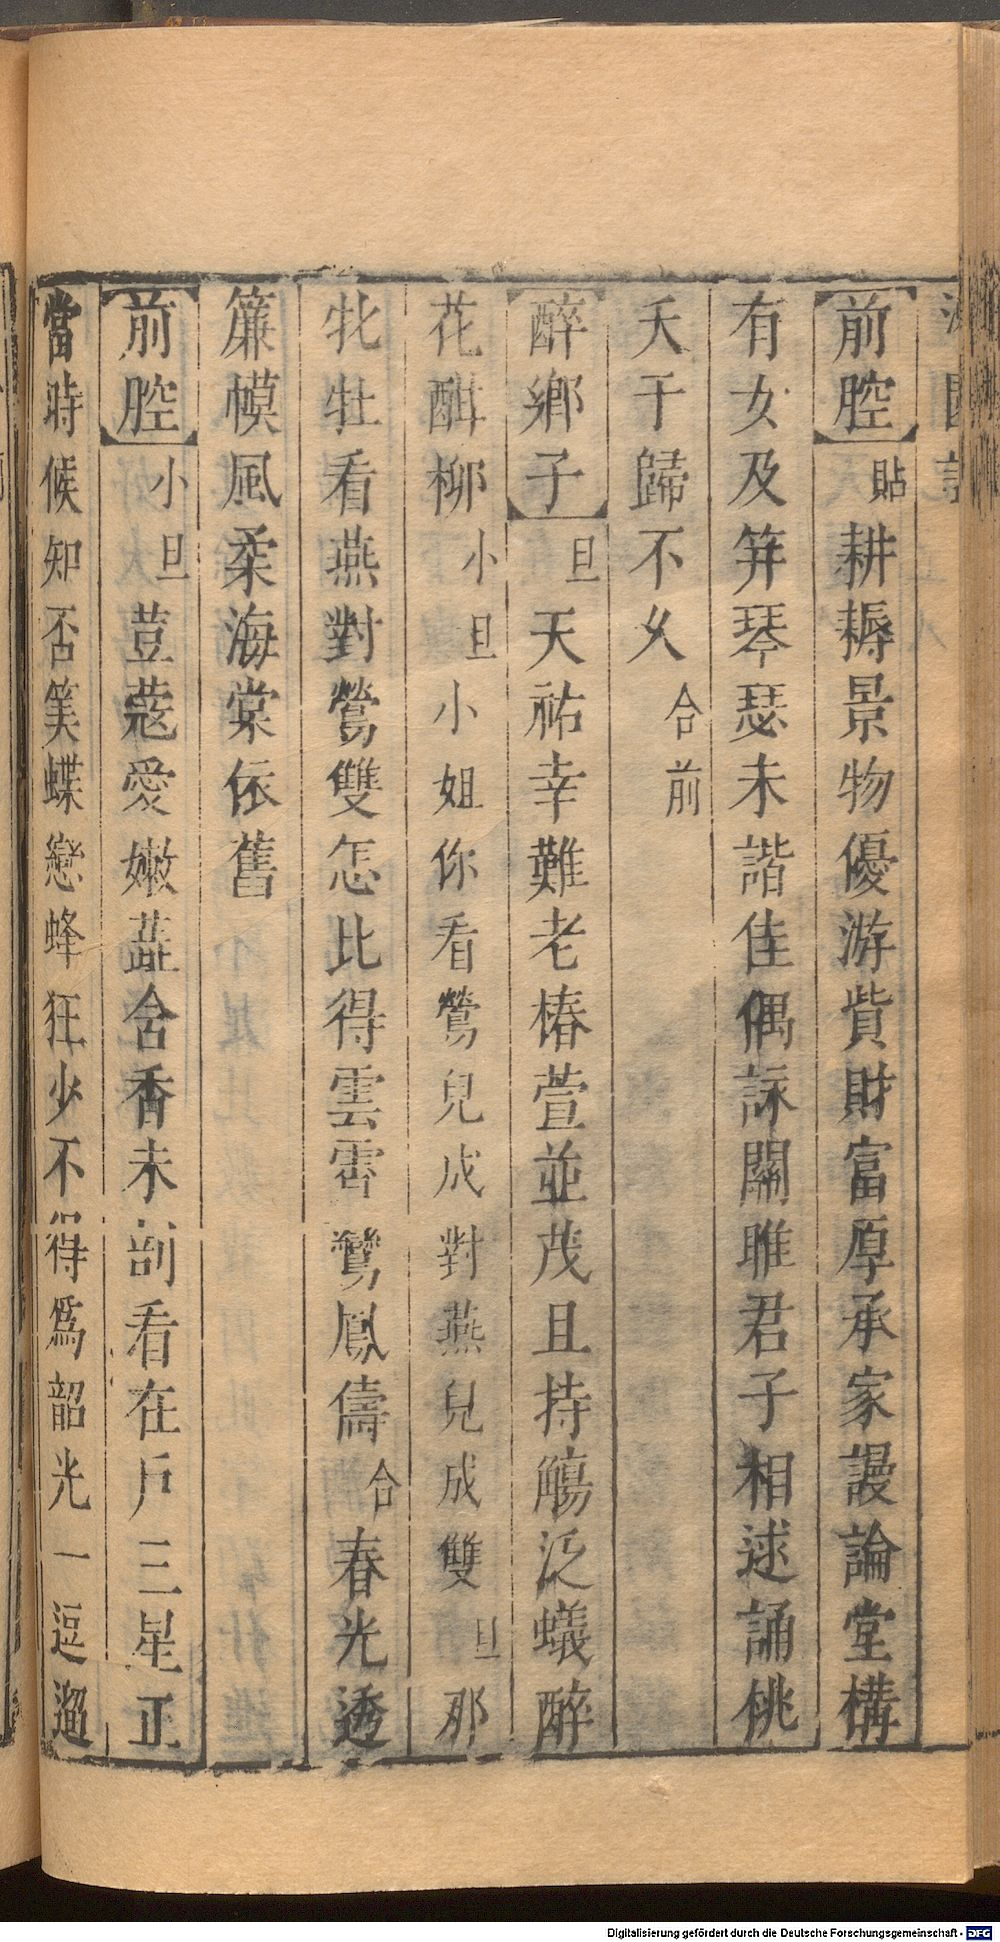 前腔貼耕耨景物優游貲財富厚承家謾論堂構
有女及笄琴瑟未諧佳偶詠關雎君子相逑誦桃
夭于歸不久合前
醉鄉子旦天祐幸難老椿萱並茂且持觴泛蟻醉
花酣柳小旦小姐你看鶯兒成對燕兒成雙旦那
牝牡看燕對鶯雙怎比得雲霄鸞鳳儔合春光透
簾幙風柔海棠依舊
前腔小旦荳蔻愛嫩蕋含香未剖看在戶三星正
當時候知否笑蝶戀蜂狂少不得為韶光一逗遛
Digitalisierung gefördert durch die Deutsche Forschungsgemeinschaft - DFG